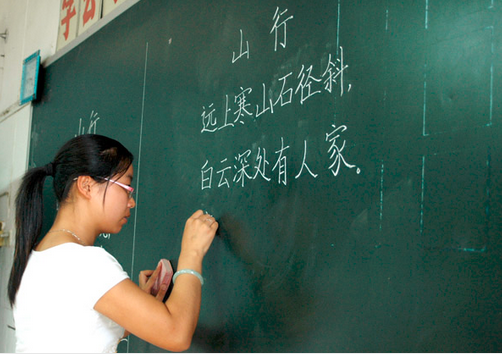 山行
远上寒山石径斜,
白云深处有人家。
山行